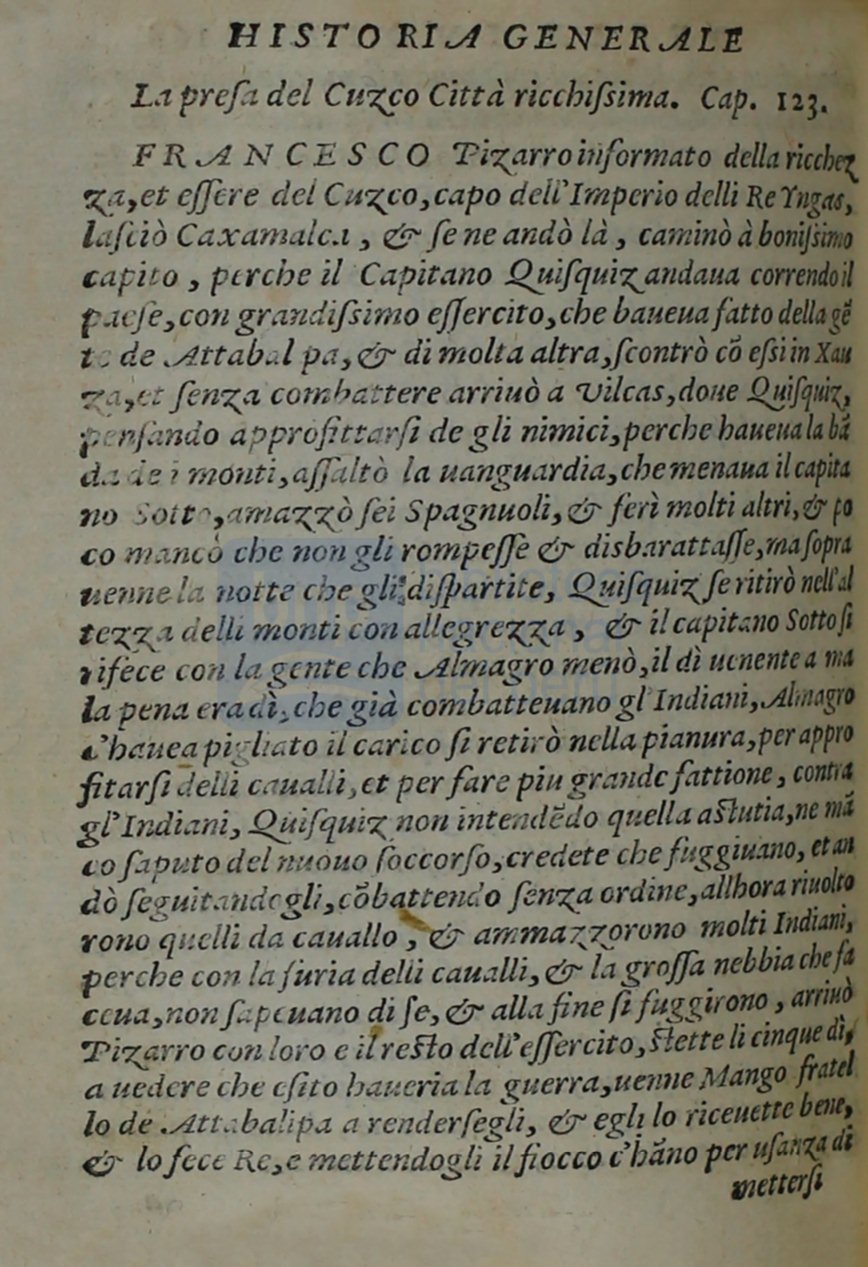 HISTORIA GENERALE
La presa del Cuzco Città ricchissima. Cap. 123.
FRANCESCO Pizarro informato della ricchez
za, et essere del Cuzco, capo dell'Imperio delli Re Yngas,
lasciò Caxamalca, & se ne andò là, caminò à bonissimo
capito, perche il Capitano Quisquiz andaua correndo il
paese, con grandissimo essercito, che haueua fatto della gẽ
te de Attabal pa, & di molta altra, scontrò cõ essi in Xau
za, et senza combattere arriuò a Vilcas, doue Quisquiz,
pensando approfittarsi de gli nimici, perche haueua la bã
da de i monti, assaltò la uanguardia, che menaua il capita
no Sotto, amazzò sei Spagnuoli, & ferì molti altri, & po
co mancò che non gli rompesse & disbarattasse, ma sopra
uenne la notte che gli dispartite, Quisquiz se ritirò nell'al
tezza delli monti con allegrezza, & il capitano Sotto si
rifece con la gente che Almagro menò, il dì uenente a ma
la pena era dì, che già combatteuano gl'Indiani, Almagro
c'hauea pigliato il carico si retirò nella pianura, per appro
fitarsi delli caualli, et per fare piu grande fattione, contra
gl'Indiani, Quisquiz non intendẽdo quella astutia, ne mã
co saputo del nuouo soccorso, credete che fuggiuano, et an
dò seguitandogli, cõbattendo senza ordine, allhora riuolto
rono quelli da cauallo, & ammazzorono molti Indiani,
perche con la furia delli caualli, & la grossa nebbia che fa
ceua, non sapeuano di se, & alla fine si fuggirono, arriuò
Pizarro con loro e il resto dell'essercito, stette lì cinque dì,
a uedere che esito haueria la guerra, uenne Mango fratel
lo de Attabalipa a rendersegli, & egli lo riceuette bene,
& lo fece Re, e mettendogli il fiocco c'hãno per usanza di
mettersi